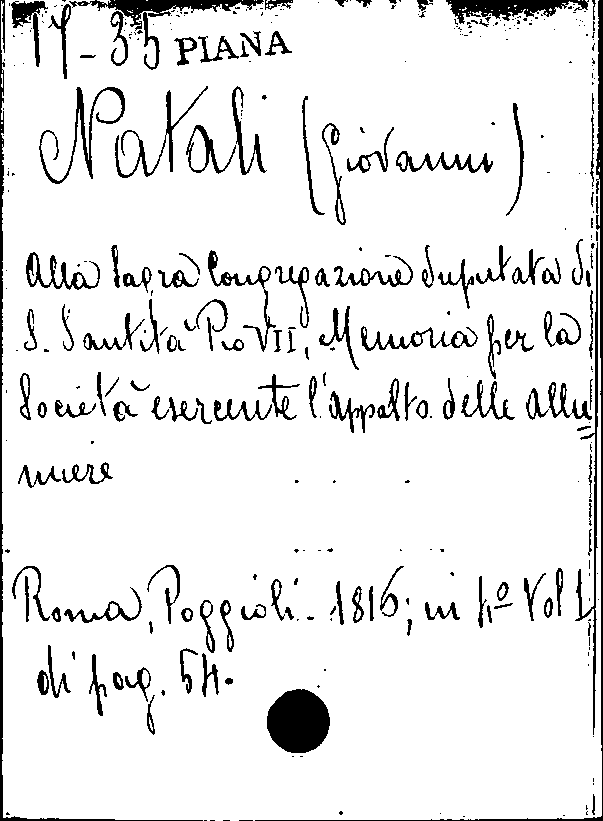 17-35 PIANA
Natali (Giovanni)
Alla Sagra Congregazione Deputata di
S. Santità Pio VII, Memoria per la
Società esercente l'appalto delle allu=
miere
Roma, Poggioli. 1816; in 4º Vol 1
di pag. 54.